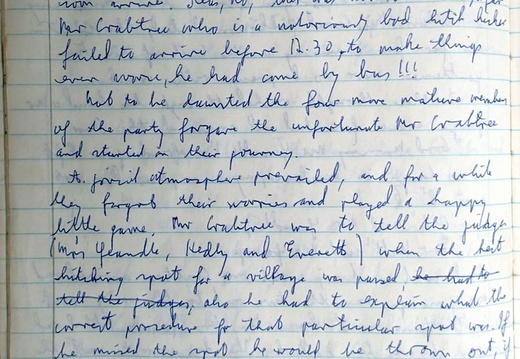 Mr Crabtree who is a notoriously bad hitch hiker
failed to arrive before 12.30, to make things
even worse, he had come by bus!!!
Not to be daunted the four more mature members
of the party forgave the unfortunate Mr Crabtree
and started on their journey.
A jovial atmosphere prevailed, and for a while
they forgot their worries and played a happy
little game. Mr Crabtree was to tell the judges
(Mrs Yeandle, Kelly and Everett) when the best
hitching spot for a village was passed, he had to
tell the judges, also he had to explain what the
correct procedure for that particular spot was. If
he missed the spot he would be thrown out, if